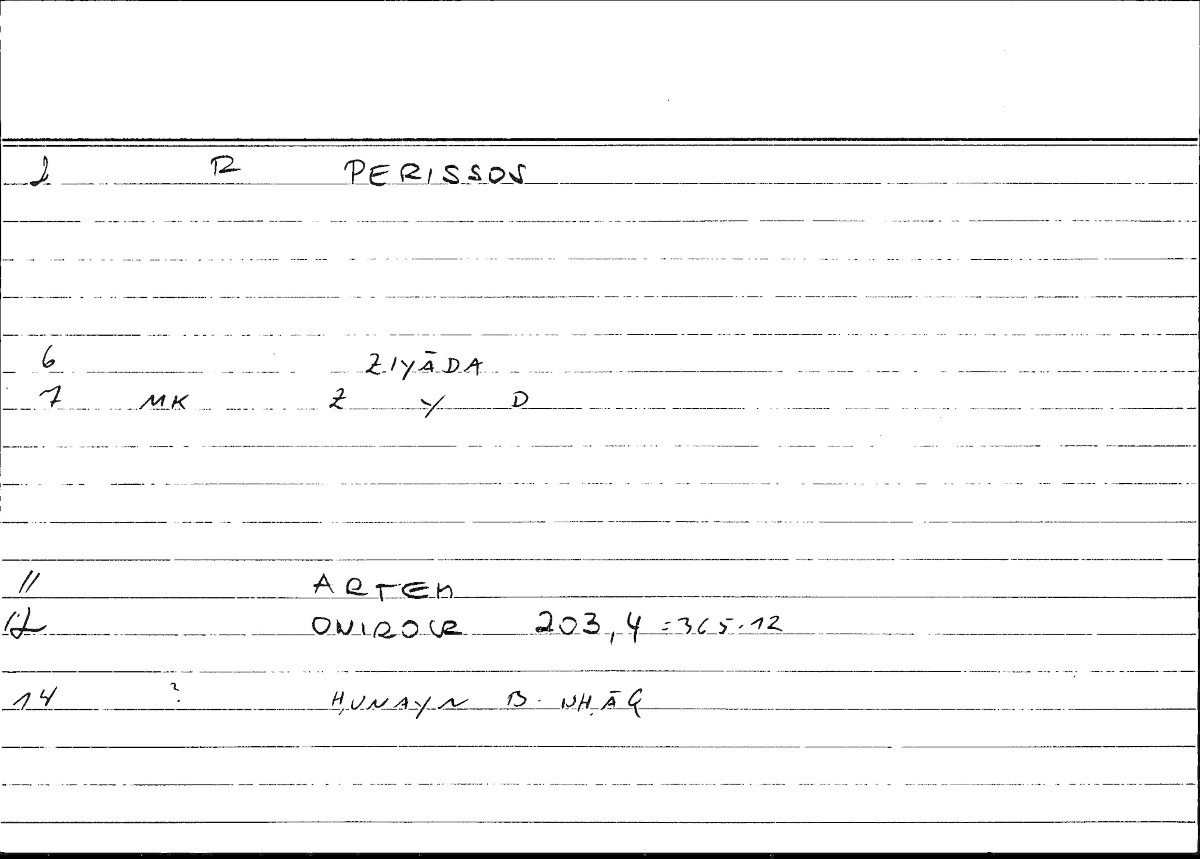 1 R PERISSOS
6 ZIYĀDA
7 MK Z Y D
11 ARTEM
12 ONIROCR 203,4 = 365.12
14 ? ḤUNAYN B. ISḤĀQ